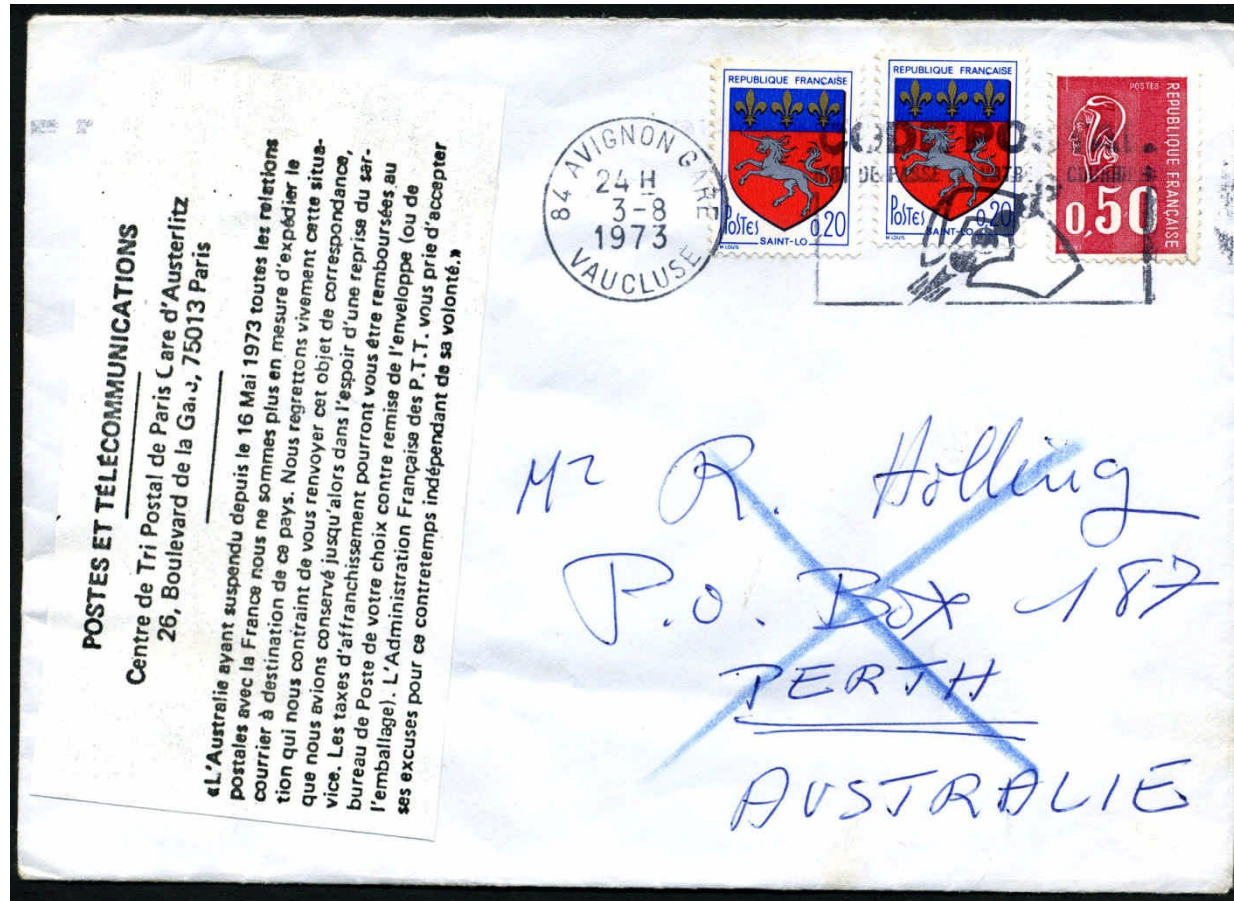 POSTES ET TÉLÉCOMMUNICATIONS
Centre de Tri Postal de Paris Gare d'Austerlitz
26, Boulevard de la Gare, 75013 Paris
«L'Australie ayant suspendu depuis le 16 Mai 1973 toutes les relations
postales avec la France nous ne sommes plus en mesure d'expédier le
courrier à destination de ce pays. Nous regrettons vivement cette situa-
tion qui nous contraint de vous renvoyer cet objet de correspondance,
que nous avions conservé jusqu'alors dans l'espoir d'une reprise du ser-
vice. Les taxes d'affranchissement pourront vous être remboursées au
bureau de Poste de votre choix contre remise de l'enveloppe (ou de
l'emballage). L'Administration Française des P.T.T. vous prie d'accepter
ses excuses pour ce contretemps indépendant de sa volonté.»
84 AVIGNON GARE
24 H
3-8
1973
VAUCLUSE
REPUBLIQUE FRANÇAISE
Postes 0,20
SAINT-LO
REPUBLIQUE FRANÇAISE
Postes 0,20
SAINT-LO
POSTES
REPUBLIQUE FRANÇAISE
0,50
CODE POSTAL
MOT DE PASSE
Mr R. Holling
P.O. Box 187
PERTH
AUSTRALIE